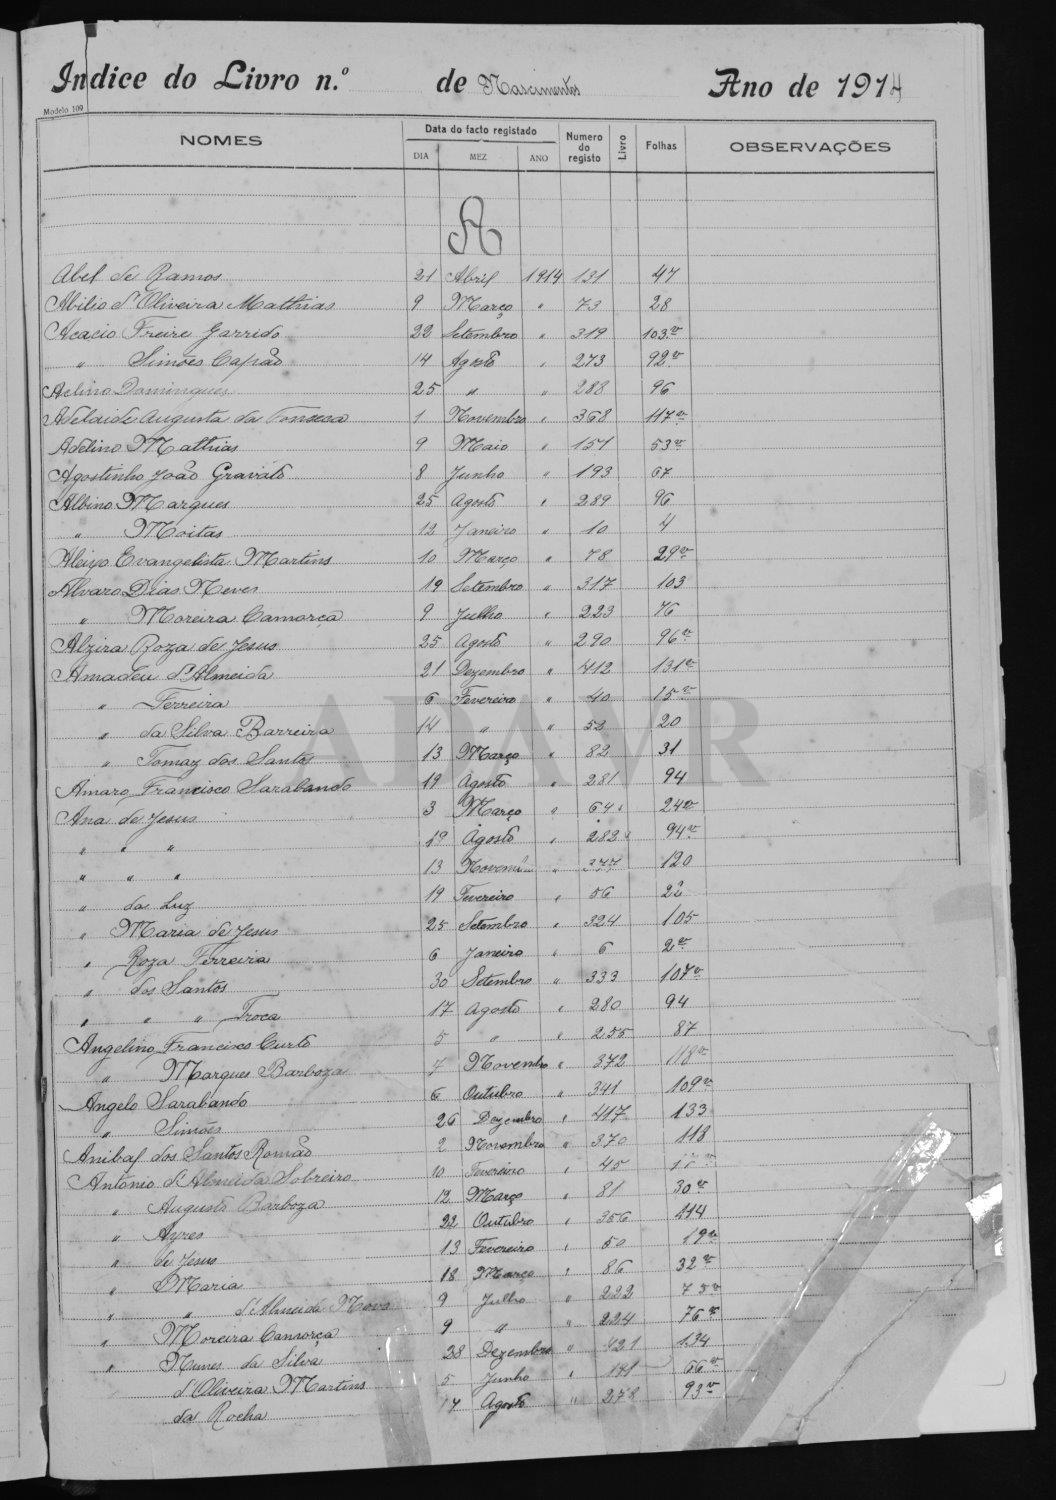 Indice do Livro n.º de Nascimentos Ano de 1914
Modelo 109
NOMES Data do facto registado Numero do registo Livro Folhas OBSERVAÇÕES
DIA MEZ ANO
A
Abel de Ramos 21 Abril 1914 131 47
Abilio d'Oliveira Mathias 9 Março " 73 28
Acacio Freire Garrido 22 Setembro " 319 103v
" Simões Capão 14 Agosto " 273 92v
Aclino Domingues 25 " " 288 96
Adelaide Augusta da Fonseca 1 Novembro " 368 117v
Adelino Mathias 9 Maio " 157 53v
Agostinho João Gravato 8 Junho " 193 67
Albino Marques 25 Agosto " 289 96
" Moitas 12 Janeiro " 10 4
Aleixo Evangelista Martins 10 Março " 78 29v
Alvaro Dias Neves 19 Setembro " 317 103
" Moreira Camorça 9 Julho " 223 76
Alzira Roza de Jesus 25 Agosto " 290 96v
Amadeu d'Almeida 21 Dezembro " 412 131v
" Ferreira 6 Fevereiro " 40 15v
" da Silva Barreira 14 " " 52 20
" Tomaz dos Santos 13 Março " 82 31
Amaro Francisco Sarabando 19 Agosto " 281 94
Ana de Jesus 3 Março " 64 24v
" " " 19 Agosto " 282 94v
" " " 13 Novembro " 377 120
" da Luz 19 Fevereiro " 56 22
" Maria de Jesus 25 Setembro " 324 105
" Roza Ferreira 6 Janeiro " 6 2v
" dos Santos 30 Setembro " 333 107v
" " " Troca 17 Agosto " 280 94
Angelino Francisco Curto 5 " " 255 87
" Marques Barboza 7 Novembro " 372 118v
Angelo Sarabando 6 Outubro " 341 109v
" Simões 26 Dezembro " 417 133
Anibal dos Santos Romão 2 Novembro " 370 118
Antonio d'Almeida Sobreiro 10 Fevereiro " 45
" Augusto Barboza 12 Março " 81 30v
" Ayres 22 Outubro " 356 114
" de Jesus 13 Fevereiro " 50 19v
" Maria 18 Março " 86 32v
" " d'Almeida Novo 9 Julho " 222 75v
" Moreira Camorça 9 " " 224 76v
" Nunes da Silva 28 Dezembro " 421 134
d'Oliveira Martins 5 Junho " 191 66v
da Rocha 17 Agosto " 278 93v
ADAVR